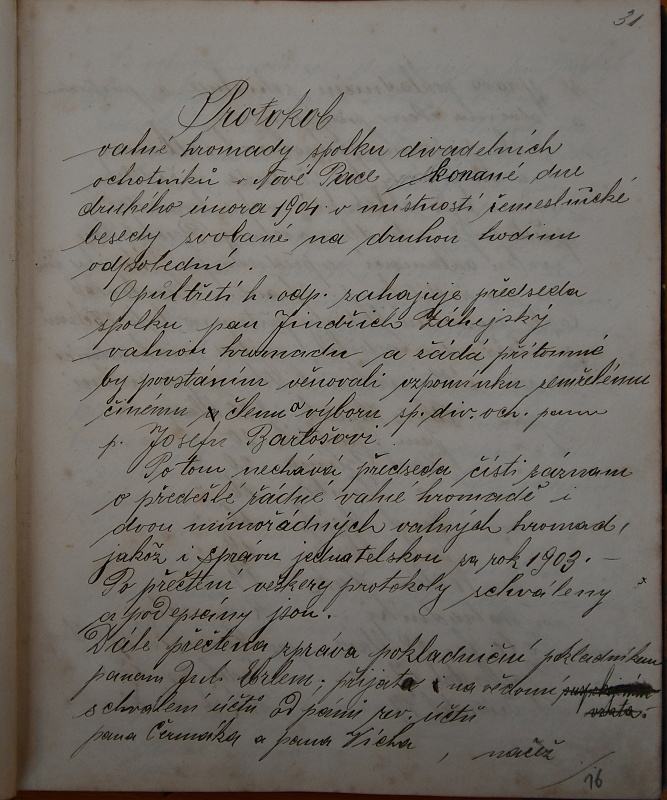 31.
Protokol
valné hromady spolku divadelních
ochotníků v Nové Pace konané dne
druhého února 1904 v místnosti řemeslnické
besedy svolané na druhou hodinu
odpolední.
O půl třetí h. odp. zahajuje předseda
spolku pan Jindřich
valnou hromadu a žádá přítomné
by povstáním věnovali vzpomínku zemřelému
činému členu a výboru sp. div. och. panu
p. Josefu Bartošovi.
Potom nechává předseda čísti záznam
o předešlé řádné valné hromadě i
dvou mimořádných valných hromad,
jakož i zprávu jednatelskou za rok 1903. —
Po přečtení veškery protokoly schváleny
a podepsány jsou.
Dále přečtena zpráva pokladniční pokladníkem
panem Jul. přijata i na vědomí
schválení účtů od pánů rev. účtů
pana Čermáka a pana Vícha, načež
76